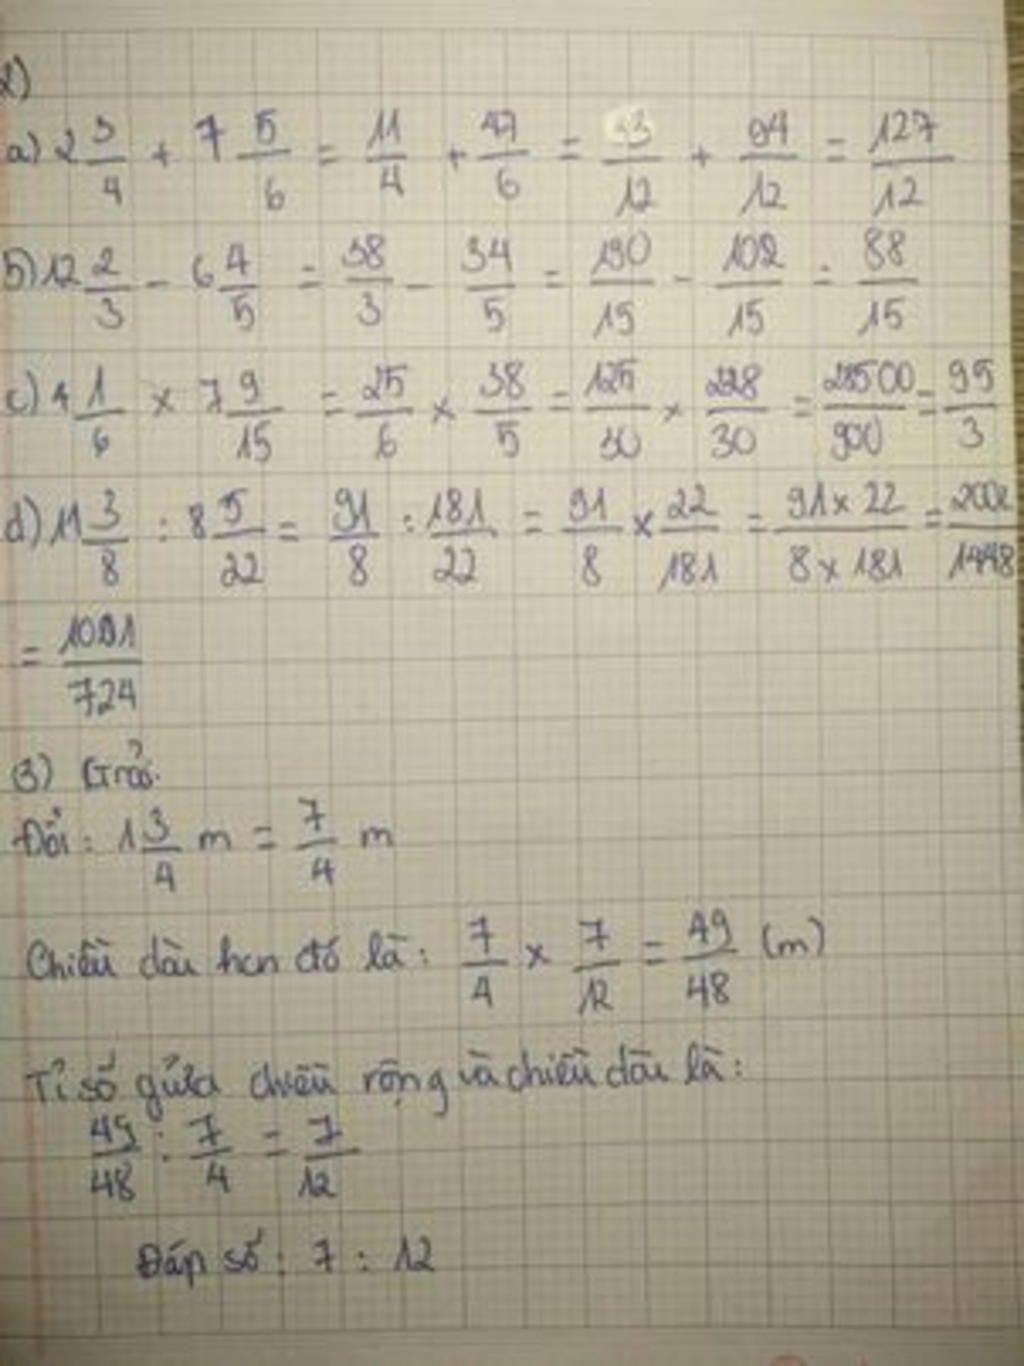 2)
a) 2 3/4 + 7 5/6 = 11/4 + 47/6 = 33/12 + 94/12 = 127/12
b) 12 2/3 - 6 4/5 = 38/3 - 34/5 = 190/15 - 102/15 = 88/15
c) 4 1/6 × 7 9/15 = 25/6 × 38/5 = 125/30 × 228/30 = 28500/900 = 95/3
d) 11 3/8 : 8 5/22 = 91/8 : 181/22 = 91/8 × 22/181 = 91 × 22/8 × 181 = 2002/1448
= /724
3) Giải
Đổi: 1 3/4 m = 7/4 m
Chiều dài hơn đó là: 7/4 × 7/12 = 49/48 (m)
Tỉ số giữa chiều rộng và chiều dài là:
49/48 : 7/4 = 7/12
Đáp số: 7 : 12